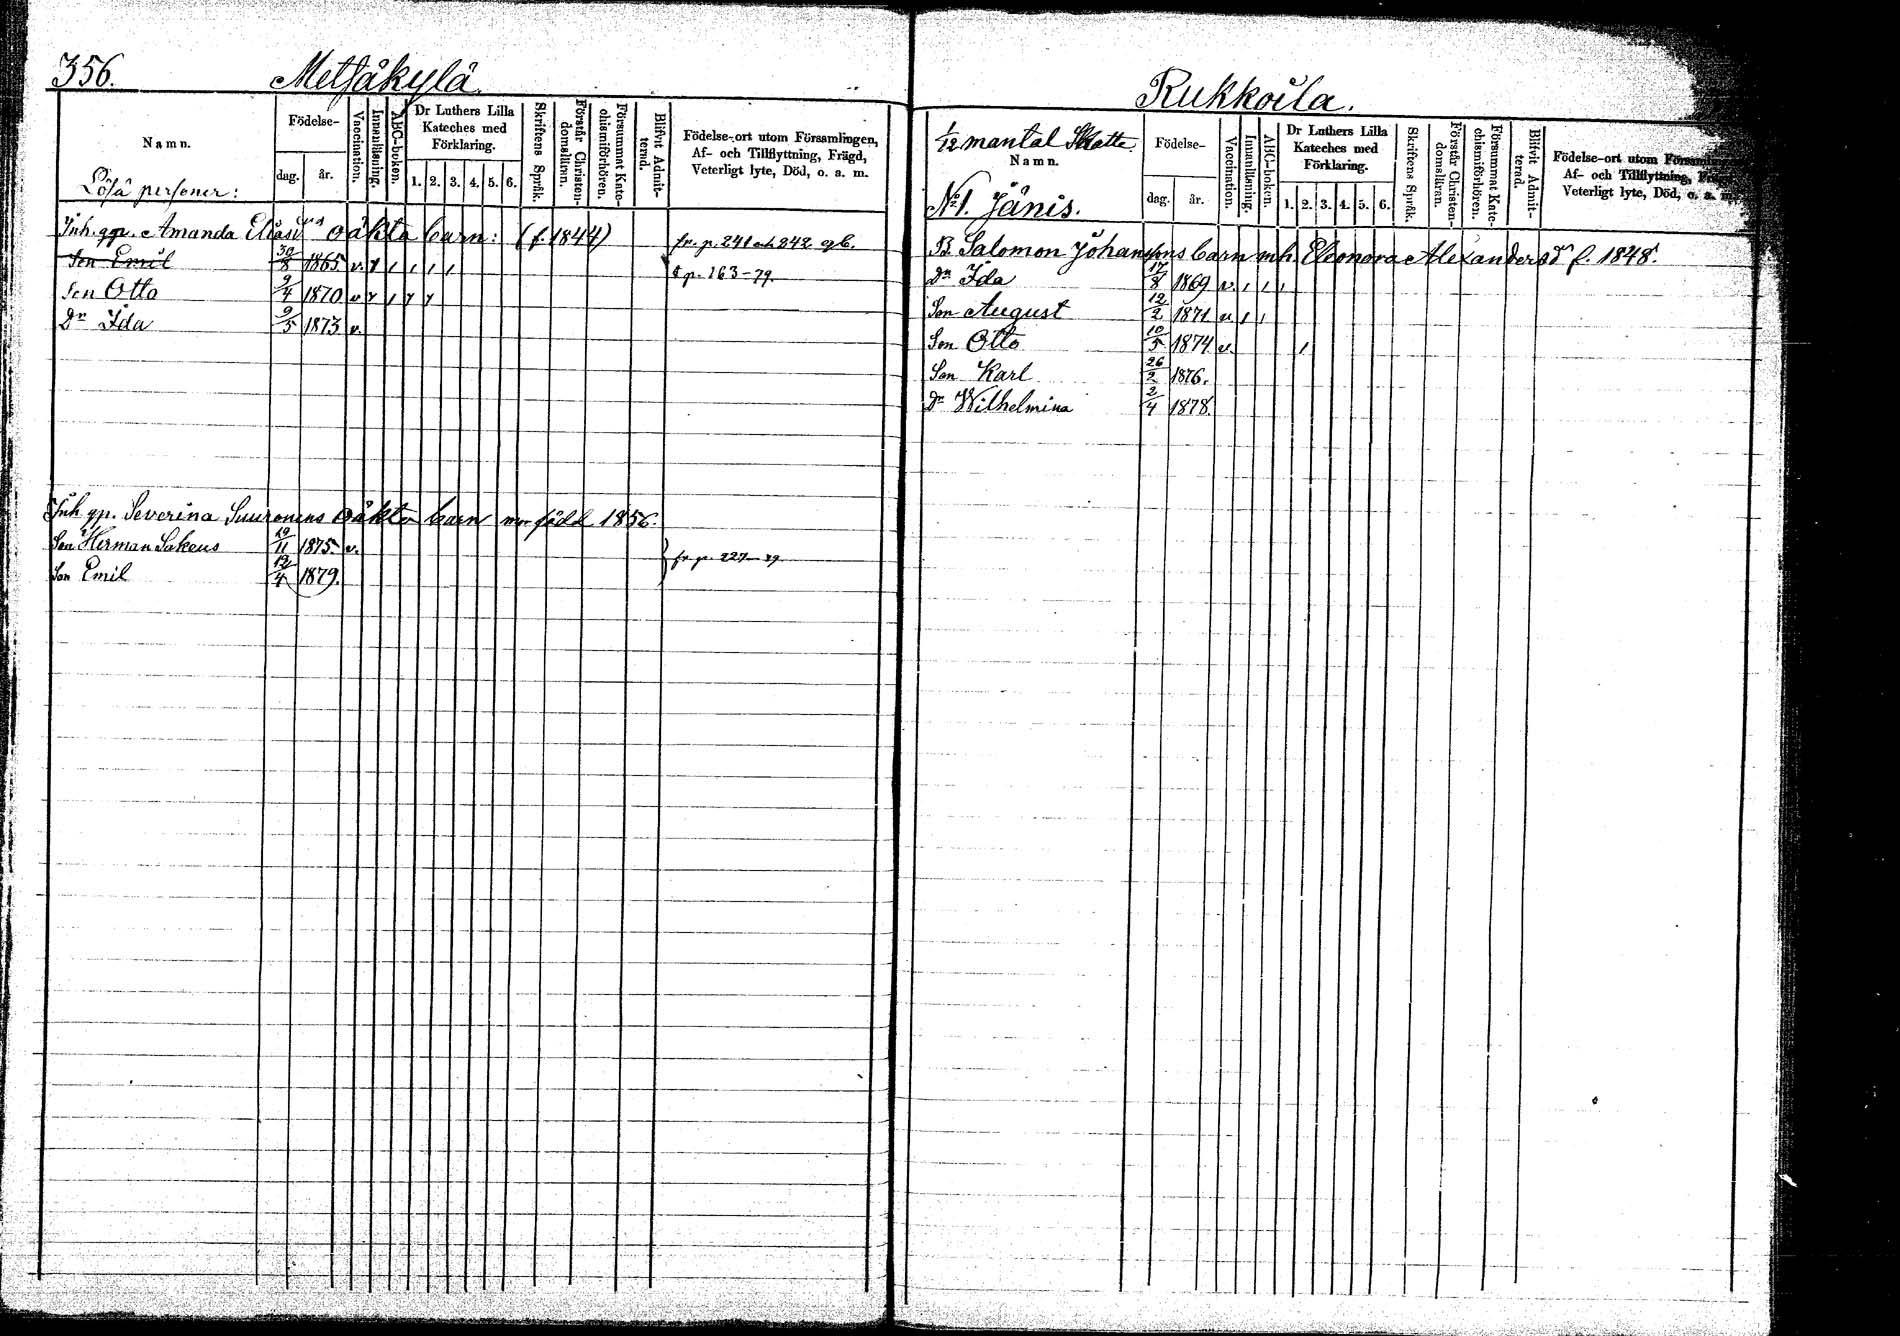 356.
Metsäkylä.
Namn.
Födelse-
dag.
år.
Vaccination.
Innanläsning.
ABC-boken.
Dr Luthers Lilla Kateches med Förklaring.
1. 2. 3. 4. 5. 6.
Skriftens Språk.
Förstår Christendomsläran.
Försummat Katechismiförhören.
Blifvit Admitterad.
Födelse-ort utom Församlingen,
Af- och Tillflyttning, Frägd,
Veterligt lyte, Död, o. a. m.
Lösa personer:
Inh. qp. Amanda Eliasd:rs oäkta barn: (f. 1844) fr. p. 241 och 242 gb.
Son Emil 30/8 1865 v. p. 163-79.
Son Otto 2/4 1870 v
Dr Ida 9/5 1873 v.
Inh. qp. Severina Suuronens oäkta barn mor född 1856.
Son Herman Sakeus 19/11 1875 v. fr. p. 227-79
Son Emil 12/4 1879.
Rukkoila.
1/12 mantal Skatte.
Namn.
Födelse-
dag.
år.
Vaccination.
Innanläsning.
ABC-boken.
Dr Luthers Lilla Kateches med Förklaring.
1. 2. 3. 4. 5. 6.
Skriftens Språk.
Förstår Christendomsläran.
Försummat Katechismiförhören.
Blifvit Admitterad.
Födelse-ort utom Församling
Af- och Tillflyttning, Fräg
Veterligt lyte, Död, o. a. m.
No 1. Jänis.
B. Salomon Johanssons barn mh. Eleonora Alexandersd:r f. 1848.
Dr Ida 17/8 1869 v.
Son August 12/2 1871 v
Son Otto 10/5 1874 v.
Son Karl 26/2 1876.
Dr Wilhelmina 2/4 1878.